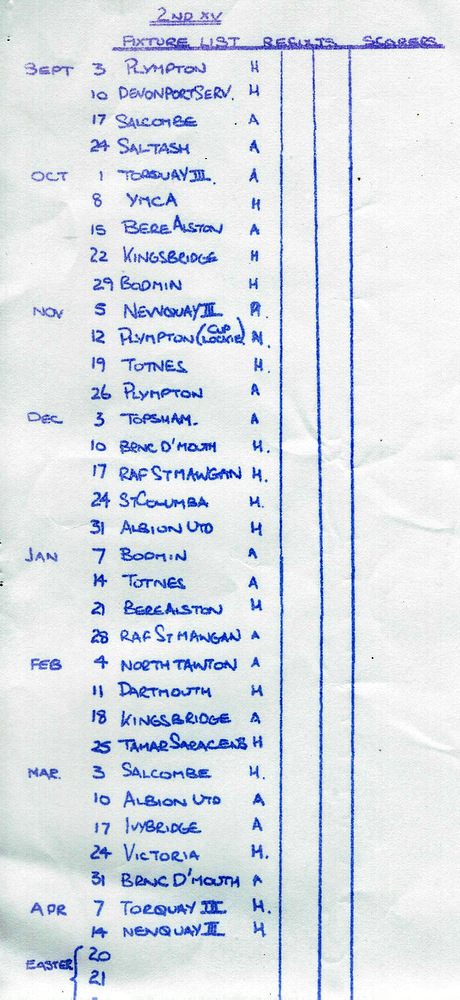 2ND XV
FIXTURE LIST RESULTS SCORERS
SEPT 3 PLYMPTON H
10 DEVONPORT SERV. H
17 SALCOMBE A
24 SALTASH A
OCT 1 TORQUAY III. A
8 YMCA H
15 BERE ALSTON A
22 KINGSBRIDGE H
29 BODMIN H
NOV 5 NEWQUAY II
12 PLYMPTON (CUP LOCKIE)
19 TOTNES H.
26 PLYMPTON A
DEC 3 TOPSHAM. A
10 BRNC D'MOUTH H.
17 RAF ST MAWGAN H.
24 ST COLUMBA H.
31 ALBION UTD H
JAN 7 BODMIN A
14 TOTNES A
21 BERE ALSTON H
28 RAF ST MAWGAN A
FEB 4 NORTH TAWTON A
11 DARTMOUTH H
18 KINGSBRIDGE A
25 TAMAR SARACENS H
MAR. 3 SALCOMBE H.
10 ALBION UTD A
17 IVYBRIDGE A
24 VICTORIA H.
31 BRNC D'MOUTH A
APR 7 TORQUAY III. H.
14 NEWQUAY II H
EASTER { 20
21